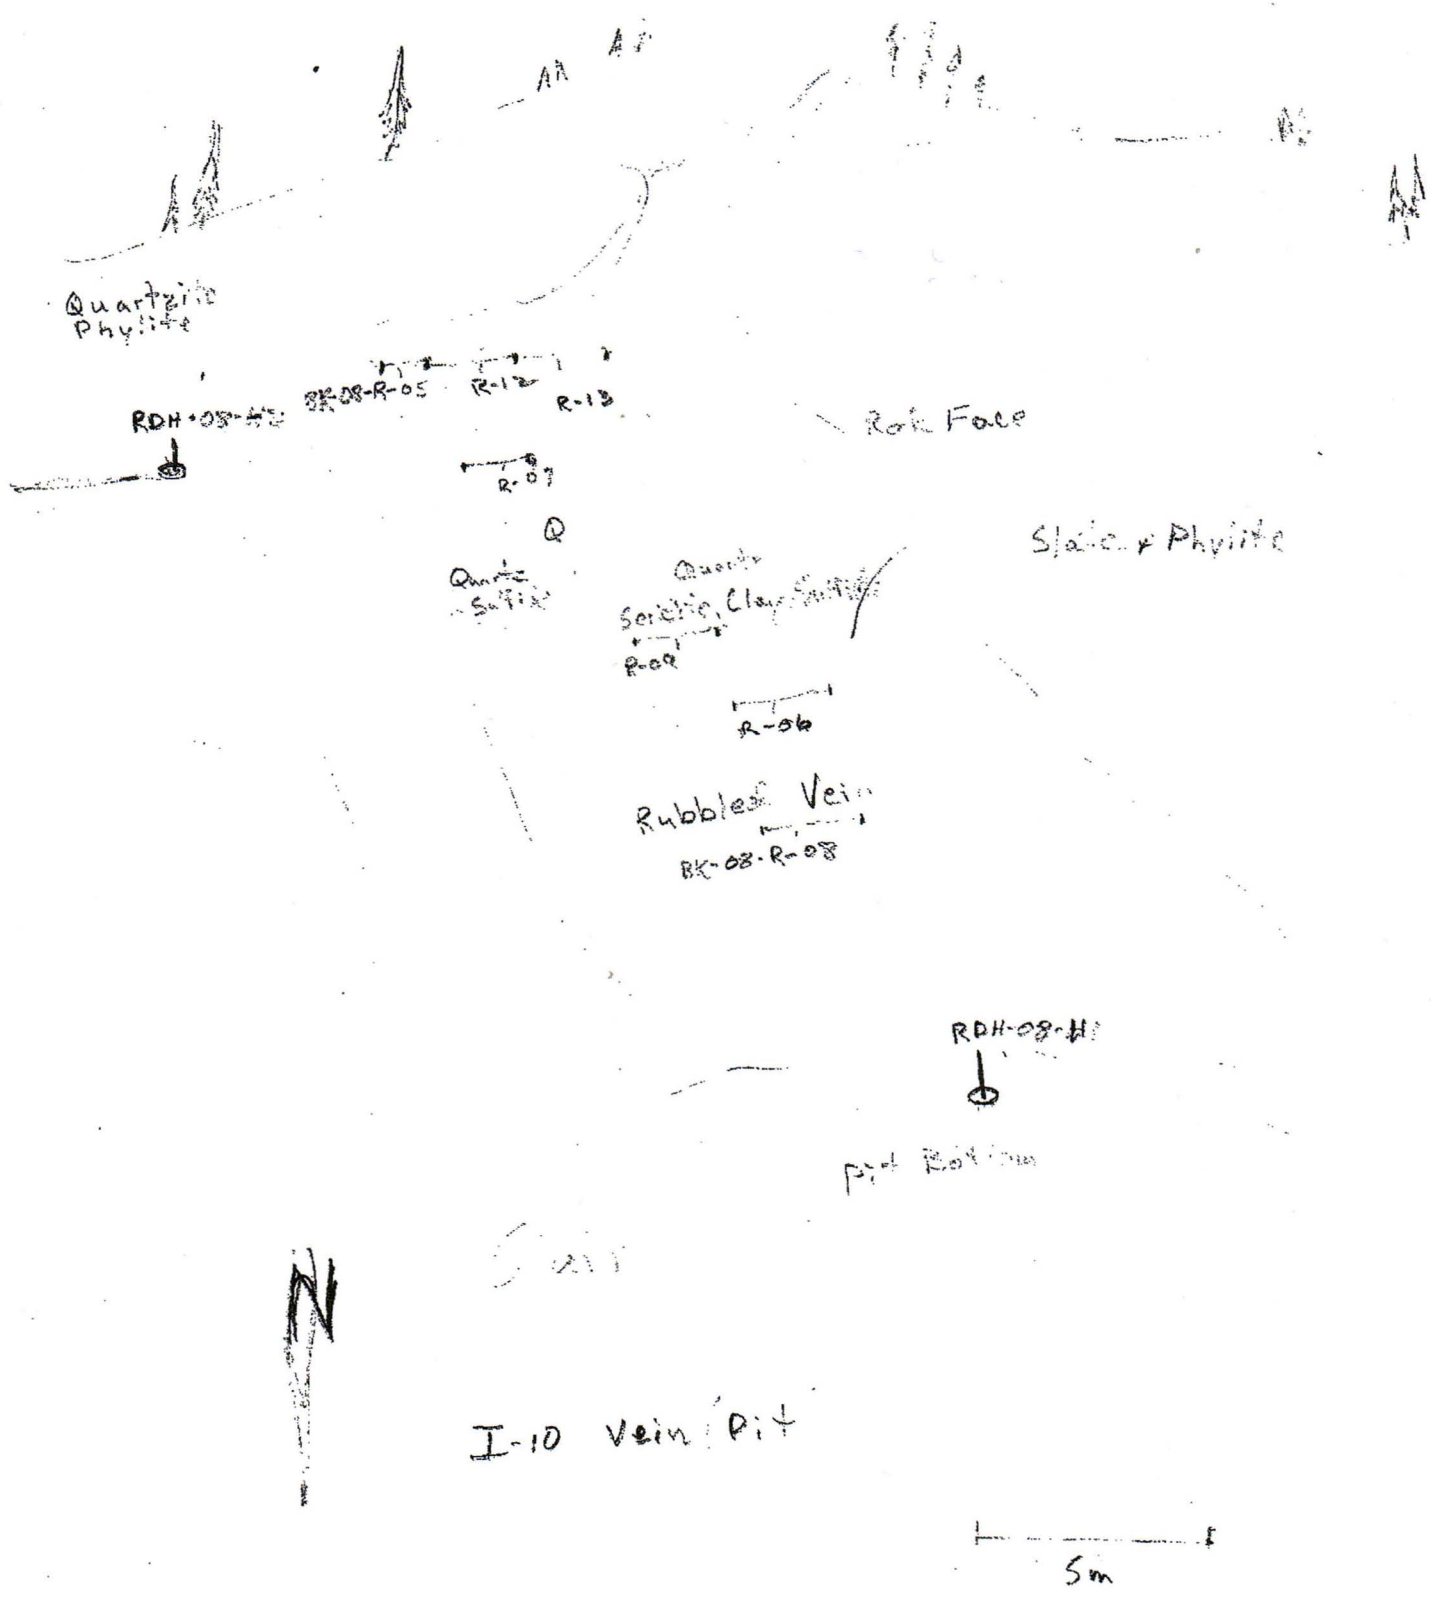 Quartzite
Phylite
RDH-08-H2
BK-08-R-05
R-12
R-13
Rok Face
R-07
Q
Quartz
Sulfide
Slate + Phylite
Quartz
Sericite, Clay
R-09
R-06
Rubbled Vein
BK-08-R-08
RDH-08-H1
Pit Bottom
N
I-10 Vein Pit
5m